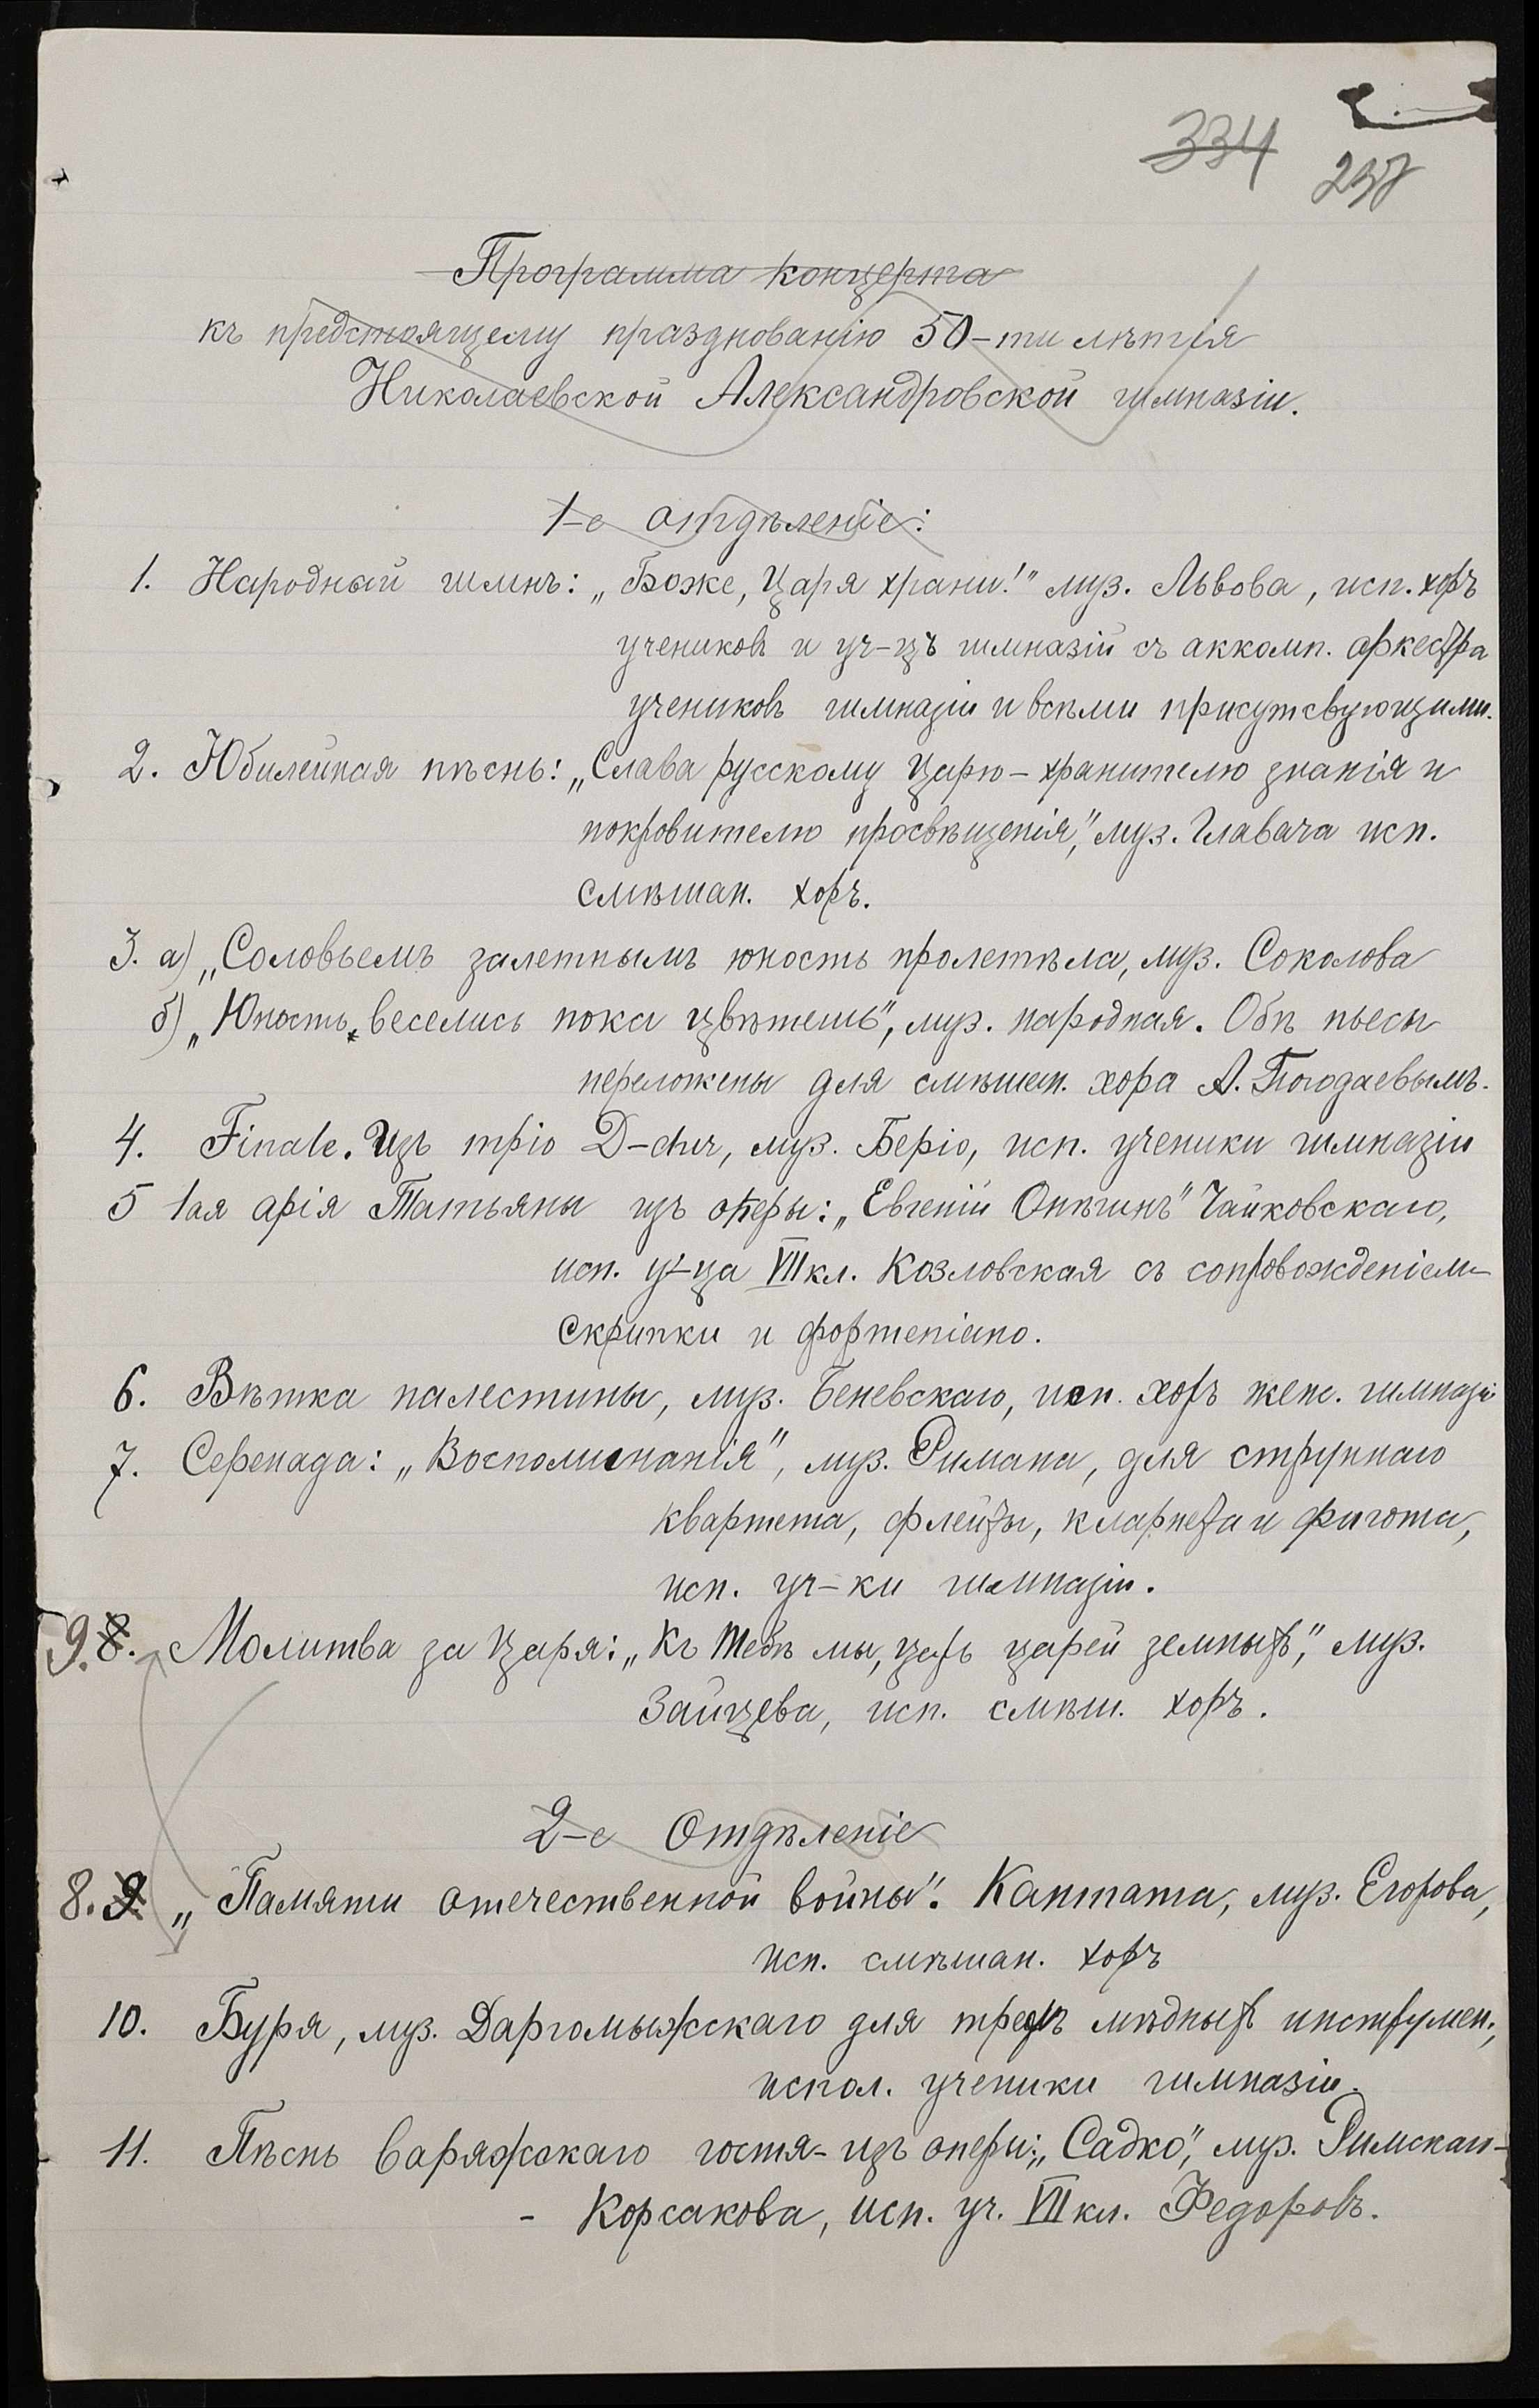 334 297
Программа концерта
къ предстоящему празднованію 50-ти лѣтія
Николаевской Александровской гимназіи.
1-е отдѣленіе:
1. Народный гимнъ: „Боже, Царя храни!" муз. Львова, исп. хоръ
учениковъ и уч-цъ гимназій съ аккомп. оркестра
учениковъ гимназіи и всѣми присутсвующими.
2. Юбилейная пѣснь: „Слава русскому Царю - хранителю знанія и
покровителю просвѣщенія," муз. Главача исп.
смѣшан. хоръ.
3. а) „Соловьемъ залетнымъ юность пролетѣла, муз. Соколова
б) „Юность, веселись пока цвѣтешь", муз. народная. Обѣ пьесы
переложены для смѣшан. хора А. Погодаевымъ.
4. Finale. Изъ тріо D-dur, муз. Беріо, исп. ученики гимназіи
5 1ая арія Татьяны изъ оперы: „Евгеній Онѣгинъ" Чайковскаго,
исп. у-ца VII кл. Козловская съ сопровожденіемъ
скрипки и фортепіано.
6. Вѣтка палестины, муз. Беневскаго, исп. хоръ женс. гимназіи
7. Серенада: „Воспоминанія", муз. Римана, для струннаго
квартета, флейты, кларнета и фагота,
исп. уч-ки гимназіи.
9. 8. Молитва за Царя: „Къ Тебѣ мы, царь царей земныхъ," муз.
Зайцева, исп. смѣш. хоръ.
2-е Отдѣленіе
8. 9. „Памяти отечественной войны". Кантата, муз. Егорова,
исп. смѣшан. хоръ
10. Буря, муз. Даргомыжскаго для трехъ мѣдныхъ инструмен.,
испол. ученики гимназіи.
11. Пѣснь варяжскаго гостя - изъ оперы: „Садко", муз. Римскаго-
- Корсакова, исп. уч. VII кл. Федоровъ.